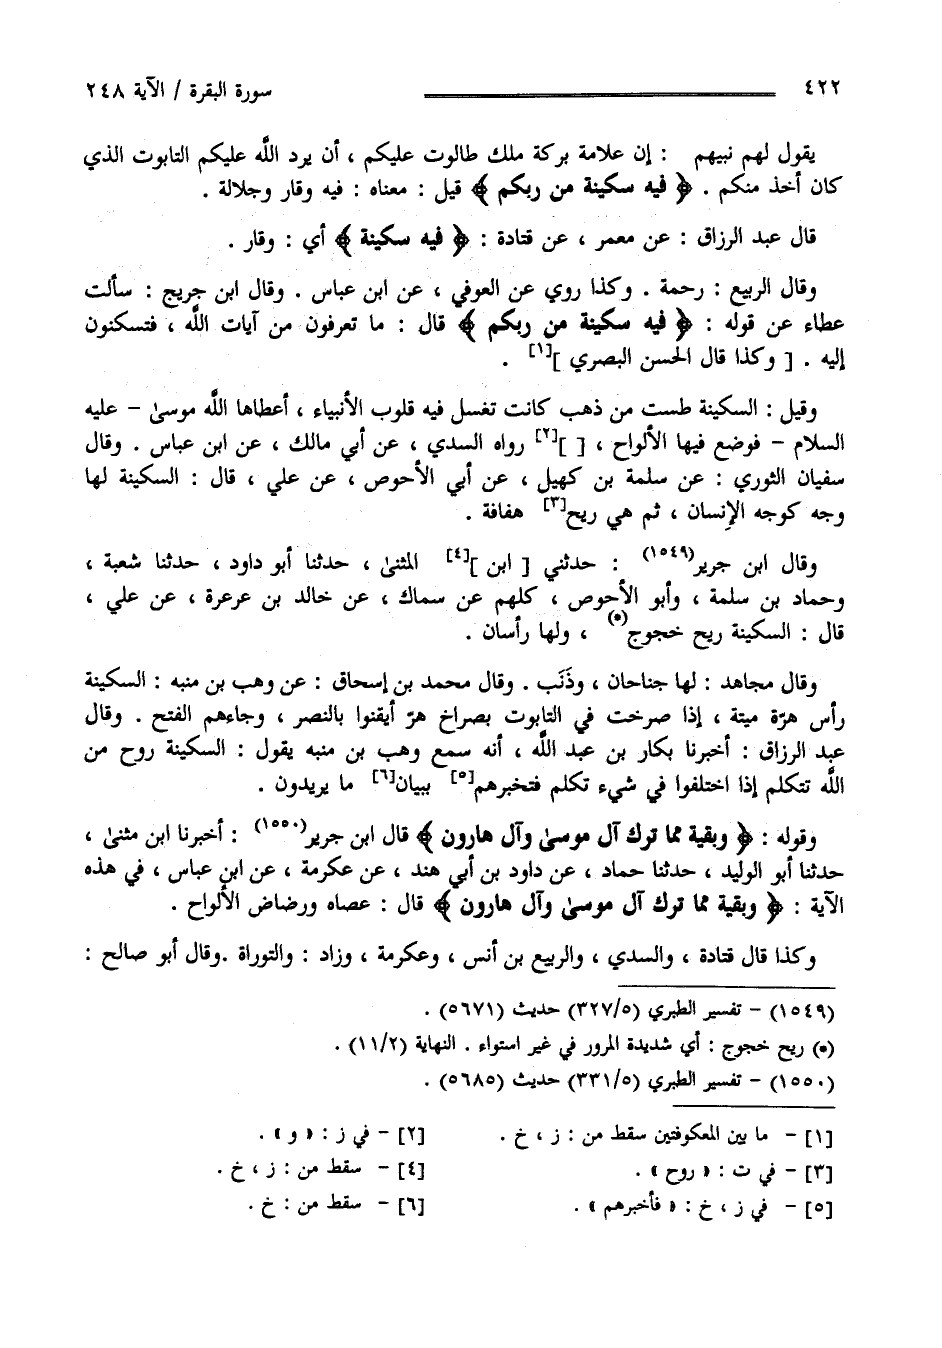 ٤٢٢ سورة البقرة / الآية ٢٤٨
يقول لهم نبيهم : إن علامة بركة ملك طالوت عليكم ، أن يرد اللَّه عليكم التابوت الذي
كان أخذ منكم . ﴿ فيه سكينة من ربكم ﴾ قيل : معناه : فيه وقار وجلالة .
قال عبد الرزاق : عن معمر ، عن قتادة : ﴿ فيه سكينة ﴾ أي : وقار .
وقال الربيع : رحمة . وكذا روي عن العوفي ، عن ابن عباس . وقال ابن جريج : سألت
عطاء عن قوله : ﴿ فيه سكينة من ربكم ﴾ قال : ما تعرفون من آيات اللَّه ، فتسكنون
إليه . [ وكذا قال الحسن البصري ][١] .
وقيل : السكينة طست من ذهب كانت تغسل فيه قلوب الأنبياء ، أعطاها اللَّه موسىٰ – عليه
السلام – فوضع فيها الألواح ، [ ][٢] رواه السدي ، عن أبي مالك ، عن ابن عباس . وقال
سفيان الثوري : عن سلمة بن كهيل ، عن أبي الأحوص ، عن علي ، قال : السكينة لها
وجه كوجه الإنسان ، ثم هي ريح[٣] هفافة .
وقال ابن جرير(١٥٤٩) : حدثني [ ابن ][٤] المثنىٰ ، حدثنا أبو داود ، حدثنا شعبة ،
وحماد بن سلمة ، وأبو الأحوص ، كلهم عن سماك ، عن خالد بن عرعرة ، عن علي ،
قال : السكينة ريح خجوج(•) ، ولها رأسان .
وقال مجاهد : لها جناحان ، وذَنَب . وقال محمد بن إسحاق : عن وهب بن منبه : السكينة
رأس هرّة ميتة ، إذا صرخت في التابوت بصراخ هرّ أيقنوا بالنصر ، وجاءهم الفتح . وقال
عبد الرزاق : أخبرنا بكار بن عبد اللَّه ، أنه سمع وهب بن منبه يقول : السكينة روح من
اللَّه تتكلم إذا اختلفوا في شيء تكلم فتخبرهم[٥] ببيان[٦] ما يريدون .
وقوله : ﴿ وبقية مما ترك آل موسىٰ وآل هارون ﴾ قال ابن جرير(١٥٥٠) : أخبرنا ابن مثنىٰ ،
حدثنا أبو الوليد ، حدثنا حماد ، عن داود بن أبي هند ، عن عكرمة ، عن ابن عباس ، في هذه
الآية : ﴿ وبقية مما ترك آل موسىٰ وآل هارون ﴾ قال : عصاه ورضاض الألواح .
وكذا قال قتادة ، والسدي ، والربيع بن أنس ، وعكرمة ، وزاد : والتوراة .وقال أبو صالح :
(١٥٤٩) – تفسير الطبري (٣٢٧/٥) حديث (٥٦٧١) .
(•) ريح خجوج : أي شديدة المرور في غير استواء . النهاية (١١/٢) .
(١٥٥٠) – تفسير الطبري (٣٣١/٥) حديث (٥٦٨٥) .
[١] – ما بين المعكوفتين سقط من : ز ، خ . [٢] – في ز : « و » .
[٣] – في ت : « روح » . [٤] – سقط من : ز ، خ .
[٥] – في ز ، خ : « فأخبرهم » . [٦] – سقط من : خ .